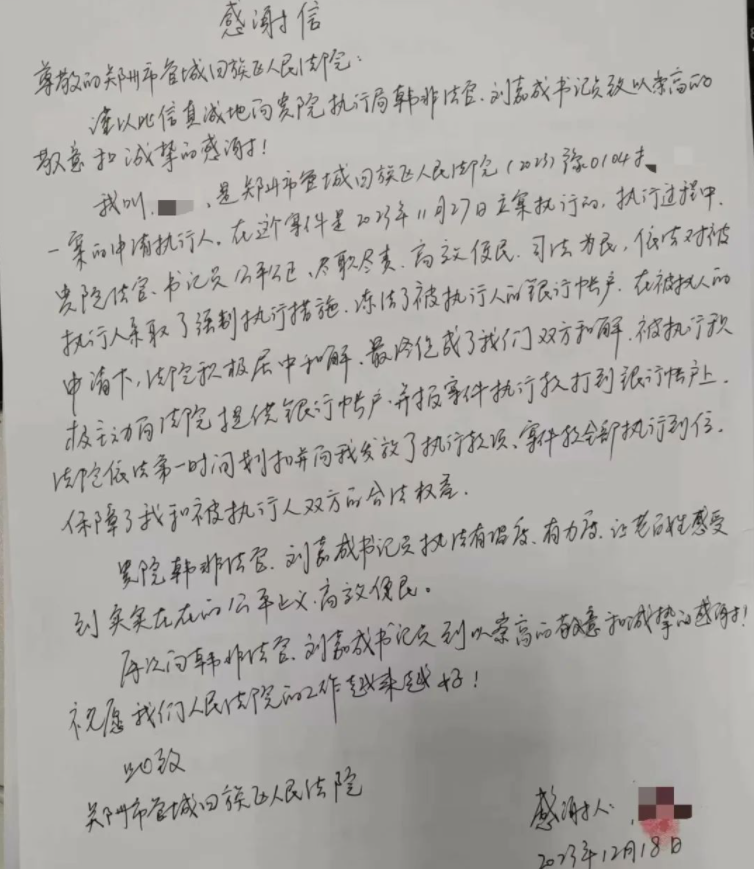 感谢信
尊敬的郑州市管城回族区人民法院：
谨以此信真诚地向贵院执行局韩非法官、刘嘉成书记员致以崇高的
敬意和诚挚的感谢！
我叫 、是郑州市管城回族区人民法院（2023）豫0104执
一案的申请执行人。在这个案件是2023年11月27日立案执行的，执行过程中，
贵院法官、书记员公平公正、尽职尽责、高效便民、司法为民，依法对被
执行人采取了强制执行措施、冻结了被执行人的银行帐户、在被执人的
申请下，法院积极居中和解、最终促成了我们双方和解、被执行积
极主动向法院提供银行帐户、并报案件执行款打到银行帐户上、
法院依法第一时间划扣并向我发放了执行款项、案件款全部执行到位、
保障了我和被执行人双方的合法权益。
贵院韩非法官、刘嘉成书记员执法有温度、有力度、让老百姓感受
到实实在在的公平正义、高效便民。
再次向韩非法官、刘嘉成书记员到以崇高的敬意和诚挚的感谢！
祝愿我们人民法院的工作越来越好！
此致
郑州市管城回族区人民法院
感谢人：
2023年12月18日